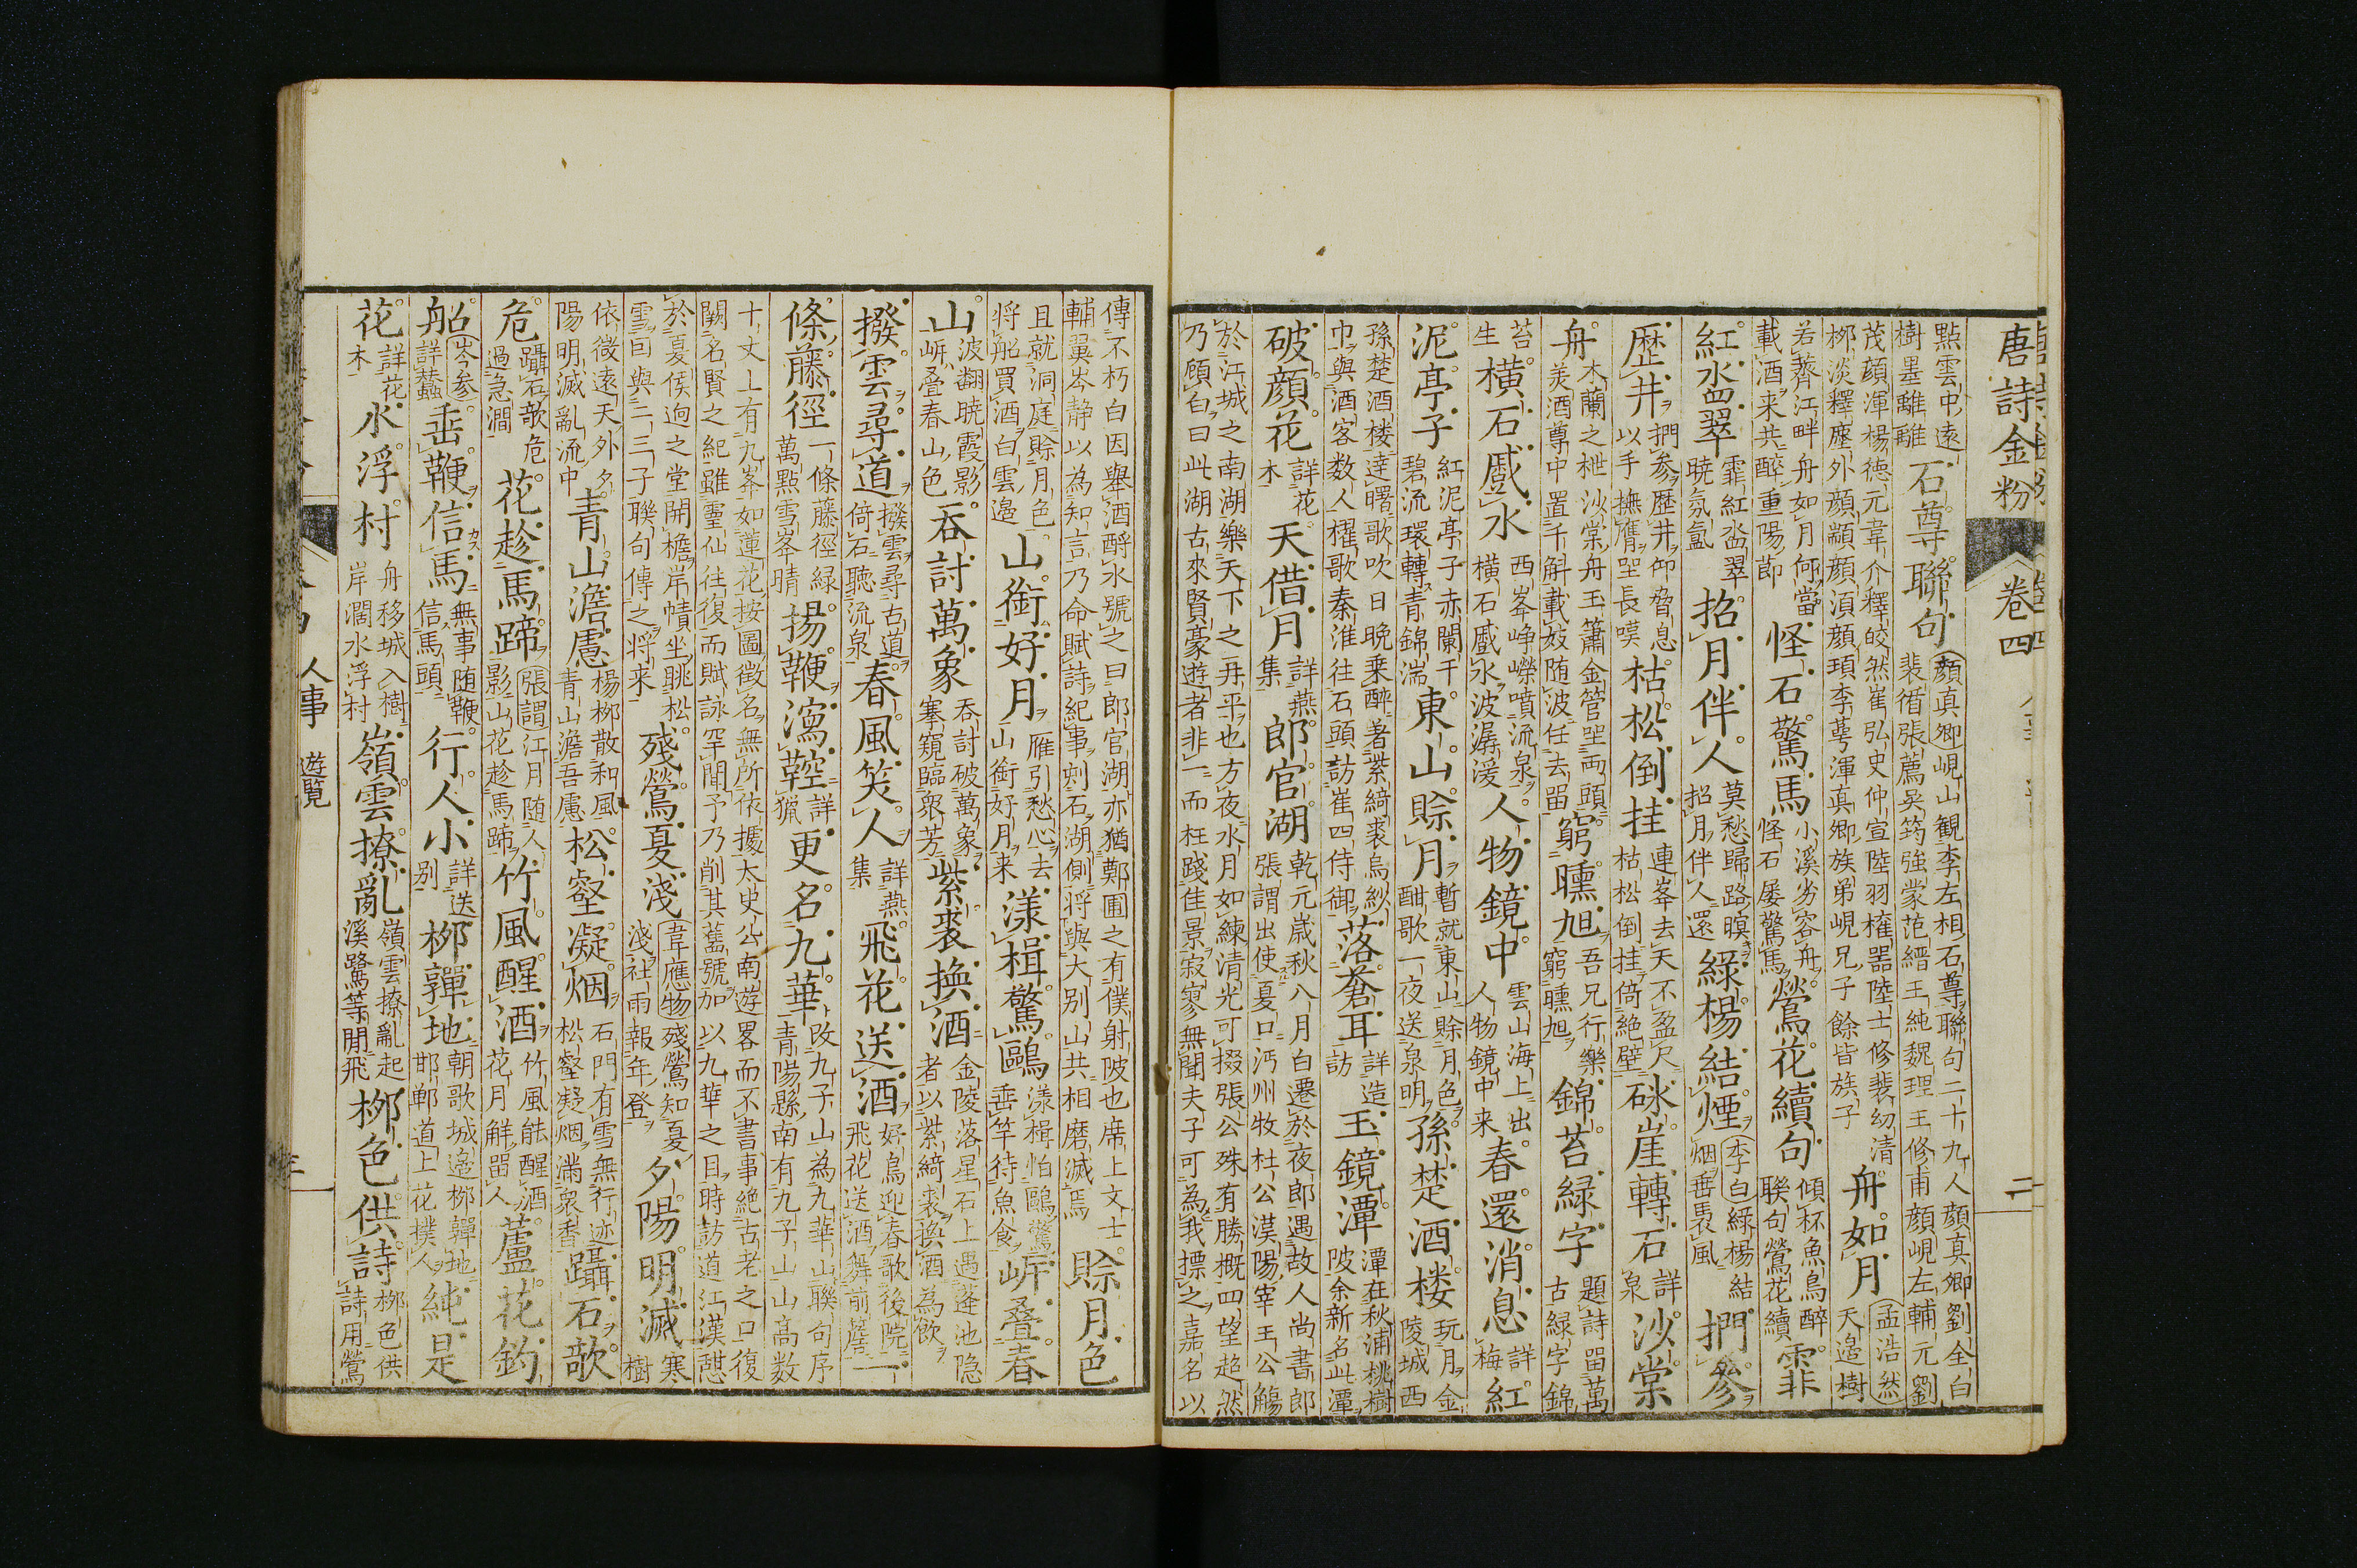 唐詩金粉 卷四 二
點雲中遠樹墨離離 石尊聯句 顏真卿峴山觀李左相石尊聯句二十九人顏真卿劉全白裴循張薦吳筠強蒙范縉王純魏理王修甫顏峴左輔元劉
茂顏渾楊德元韋介釋皎然崔弘史仲宣陸羽權器陸士修裴幼清柳淡釋塵外顏顓顏須顏頊李萼渾真卿族弟峴兄子餘皆族子 舟如月 孟浩然天邊樹
若薺江畔舟如月何當載酒来共醉重陽節 怪石驚馬 小溪劣容舟怪石屡驚馬 鶯花續句 傾杯魚鳥醉聯句鶯花續 霏
紅沓翠 霏紅沓翠暁氛氳 招月伴人 莫愁歸路暝招月伴人還 綠楊結煙 李白緑楊結烟垂裊風 捫參
歷井 捫参歷井仰脅息以手撫膺坐長嘆 枯松倒挂 連峯去天不盈尺枯松倒挂倚絶壁 砅崖轉石 詳泉 沙棠
舟 木蘭之枻沙棠舟玉簫金管坐両頭美酒尊中置千斛載妓随波任去留 窮曛旭 吾兄行樂窮曛旭 錦苔緑字 題詩留萬古緑字錦
苔生 橫石蹙水 西峯崢嶸噴流泉橫石蹙水波潺湲 人物鏡中 雲山海上出人物鏡中来 春還消息 詳梅 紅
泥亭子 紅泥亭子赤闌干碧流環轉青錦湍 東山賖月 暫就東山賖月色酣歌一夜送泉明 孫楚酒楼 玩月金陵城西
孫楚酒楼達曙歌吹日晚乗醉著紫綺裘烏紗巾與酒客数人櫂歌秦淮往石頭訪崔四侍御 落蒼耳 詳造訪 玉鏡潭 潭在秋浦桃樹陂余新名此潭
破顏花 詳花木 天借月 詳燕集 郎官湖 乾元歳秋八月白遷於夜郎遇故人尚書郎張謂出使夏口沔州牧杜公漢陽宰王公觴
於江城之南湖樂天下之再平也方夜水月如練清光可掇張公殊有勝概四望超然乃顧白曰此湖古來賢豪遊者非一而枉踐佳景寂寥無聞夫子可為我摽之嘉名以
傳不朽白因舉酒酹水號之曰郎官湖亦猶鄭圃之有僕射陂也席上文士輔翼岑静以為知言乃命賦詩紀事刻石湖側将與大別山共相磨滅焉 賖月色
且就洞庭賖月色将船買酒白雲邉 山銜好月 雁引愁心去山銜好月来 漾楫驚鷗 漾楫怕鷗驚垂竿待魚食 㟁疊春
山 波翻暁霞影㟁疊春山色 吞討萬象 吞討破萬象搴窺臨衆芳 紫裘換酒 金陵落星石上遇蓬池隐者以紫綺裘換酒為飲
撥雲尋道 撥雲尋古道倚石聽流泉 春風笑人 詳燕集 飛花送酒 好鳥迎春歌後院飛花送酒舞前簷 一
條藤徑 一條藤徑緑萬點雪峯晴 揚鞭瀉鞚 詳獵 更名九華 改九子山為九華山聯句序青陽縣南有九子山山高数
十丈上有九峯如蓮花按圖徴名無所依據太史公南遊畧而不書事絶古老之口復闕名賢之紀雖靈仙往復而賦詠罕聞予乃削其舊號加以九華之目時訪道江漢憇
於夏侯逈之堂開檐岸幘坐眺松雪曰與二三子聯句傳之将来 殘鶯夏淺 韋應物殘鶯知夏淺社雨報年登 夕陽明滅 寒樹
依微遠天外夕陽明滅亂流中 青山澹慮 楊柳散和風青山澹吾慮 松壑凝烟 石門有雪無行迹松壑凝烟滿衆香 躡石欹
危 躡石欹危過急澗 花趁馬蹄 張謂江月随人影山花趁馬蹄 竹風醒酒 竹風能醒酒花月解留人 蘆花釣
船 岑参詳蘇 垂鞭信馬 無事随鞭信馬頭 行人小 詳送別 柳嚲地 朝歌城邉柳嚲地邯鄲道上花撲人 純是
花 詳花木 水浮村 舟移城入樹岸濶水浮村 嶺雲撩亂 嶺雲撩亂起溪鷺等閒飛 柳色供詩 栁色供詩用鶯
人事 遊覧 三